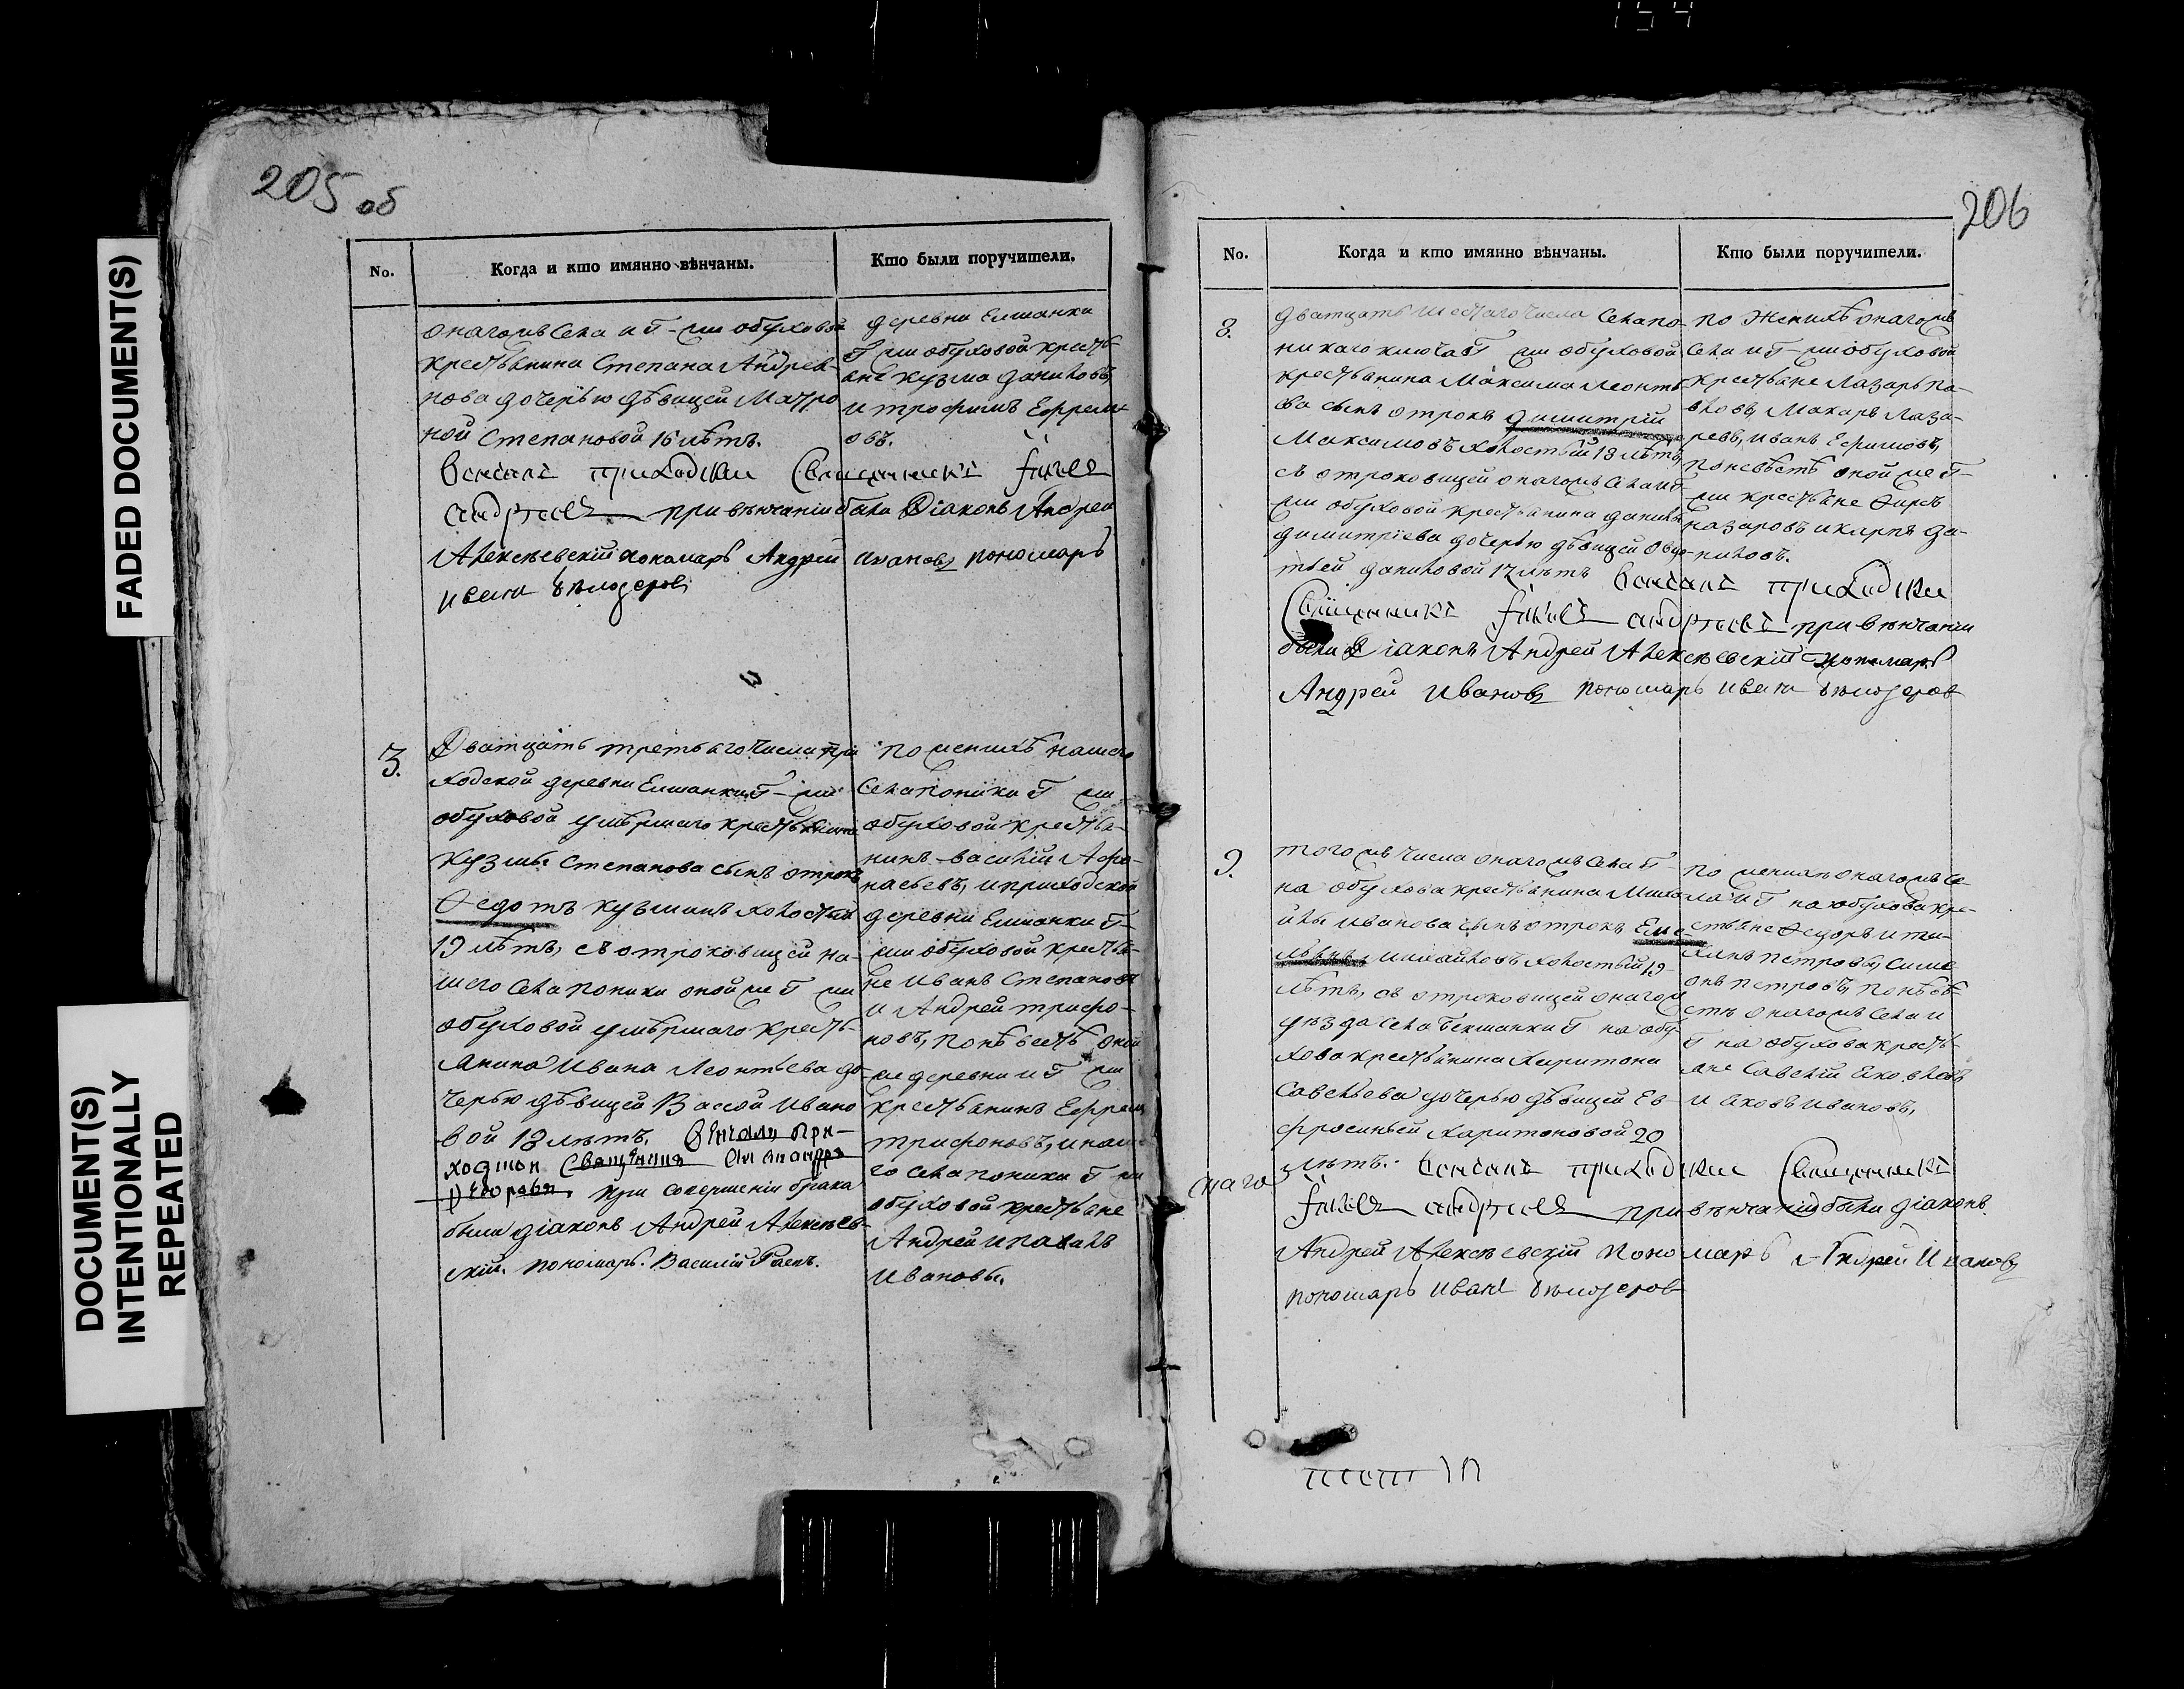 154
FADED DOCUMENT(S)
DOCUMENT(S)
INTENTIONALLY
REPEATED
205 об
No.
Когда и кто имянно вѣнчаны.
Кто были поручители.
онагожъ села и г-жи обуховой
крестьянина Степана Андрея-
нова дочерью дѣвицей Матро
ной Степановой 16 лѣтъ.
приходский Священникъ
при вѣнчаніи были Діаконъ Андрей
Алексѣевскій пономарь Андрей Ивановъ пономарь
деревни Елшанки
г жи обуховой кресть-
яне Кузма Даниловъ,
и трофимъ Ефрем-
овъ.
3.
Дватцать третьяго числа при
ходской деревни Елшанки г-жи
обуховой умѣршаго крестьянина
Кузмы Степанова сынъ отрокъ
Федотъ Кузминъ холостый
19 лѣтъ, съ отроковицей на-
шего села Поники оной же г жи
обуховой умѣршаго кресть-
янина Ивана Леонтьева до-
черью дѣвицей Вассой Ивано
вой 18 лѣтъ. Вѣнчалъ при-
ходской Священникъ
при совершеніи брака
были діаконъ Андрей Алексѣев-
скій. пономарь Василій
по женихѣ нашего
села Поники г жи
обуховой крестья-
нинъ Василій Афо-
насьевъ, и приходской
деревни Елшанки г-
жи обуховой кресья-
не Иванъ Степановъ
и Андрей трифо-
новъ, по невѣстѣ оной
же деревни и г жи
крестьянинъ Ефремъ
трифоновъ, и наше
го села Поники г жи
обуховой крестьяне
Андрей и Павелъ
Ивановы.
206
No.
Когда и кто имянно вѣнчаны.
Кто были поручители.
8.
дватцать шестаго числа села по-
никаго ключа г жи обуховой
крестьянина Максима Леонть
ева сынъ отрокъ Димитрій
Максимовъ холостый 18 лѣтъ,
съ отроковицей онагожъ села и г-
жи обуховой крестьянина данилы
димитріева дочерью дѣвицей
даниловой 17 лѣтъ приходский
Священникъ при вѣнчании
были Діаконъ Андрей Алексѣевскій пономарь
Андрей Ивановъ пономарь
по женихѣ онагожъ
села и г-жи обуховой
крестьяне Лазарь па-
вловъ, Макаръ Лаза-
ревъ, Иванъ Ефимовъ,
по невѣстѣ оной же г-
жи крестьяне
назаровъ и карпъ да-
ниловъ.
9.
тогожъ числа онагожъ села г-
на обухова крестьянина Миха
йлы Иванова сынъ отрокъ Еме-
льянъ Михайловъ холостый 19
лѣтъ, съ отроковицей онагож
уѣзда села Бекшанки г на обу-
хова крестьянина Харитона
Савельева дочерью дѣвицей Ев-
фросиньей Харитоновой 20
лѣтъ. приходский Священникъ
при вѣнчаніи были діаконъ
Андрей Алексѣевскій пономарь Андрей Ивановъ
пономарь Иванъ
по женихѣ онагожъ се-
ла и г на обухова кре-
стьяне Федоръ и ти-
петровы, Симе
онъ петровъ, по невѣ-
стѣ онагожъ села и
г на обухова кресть-
яне Савелій Яковлевъ
и Яковъ Ивановъ,